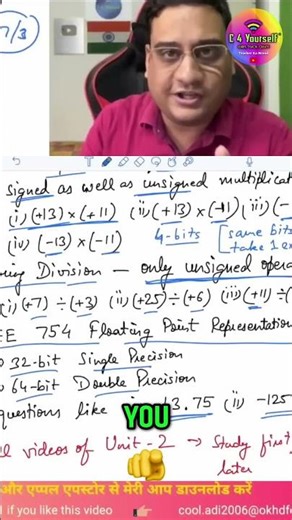 7/3
C 4 Yourself
signed as well as unsigned multiplicat
(i) (+13) × (+11) (ii) (+13) × (-11) (iii) (-
(iv) (-13) × (-11) 4-bits [same bits
take 1 ex
ing Division — only unsigned opera
(i) (+7) ÷ (+3) (ii) (+25) ÷ (+6) (iii) (+11) ÷ (
EE 754 Floating Point Representation
32-bit Single Precision
64-bit Double Precision
questions like 3.75 (ii) -125
YOU
videos of Unit-2 → Study first
later
और एप्पल एपस्टोर से मेरी आप डाउनलोड करें
if you like this video cool.adi2006@okhdf